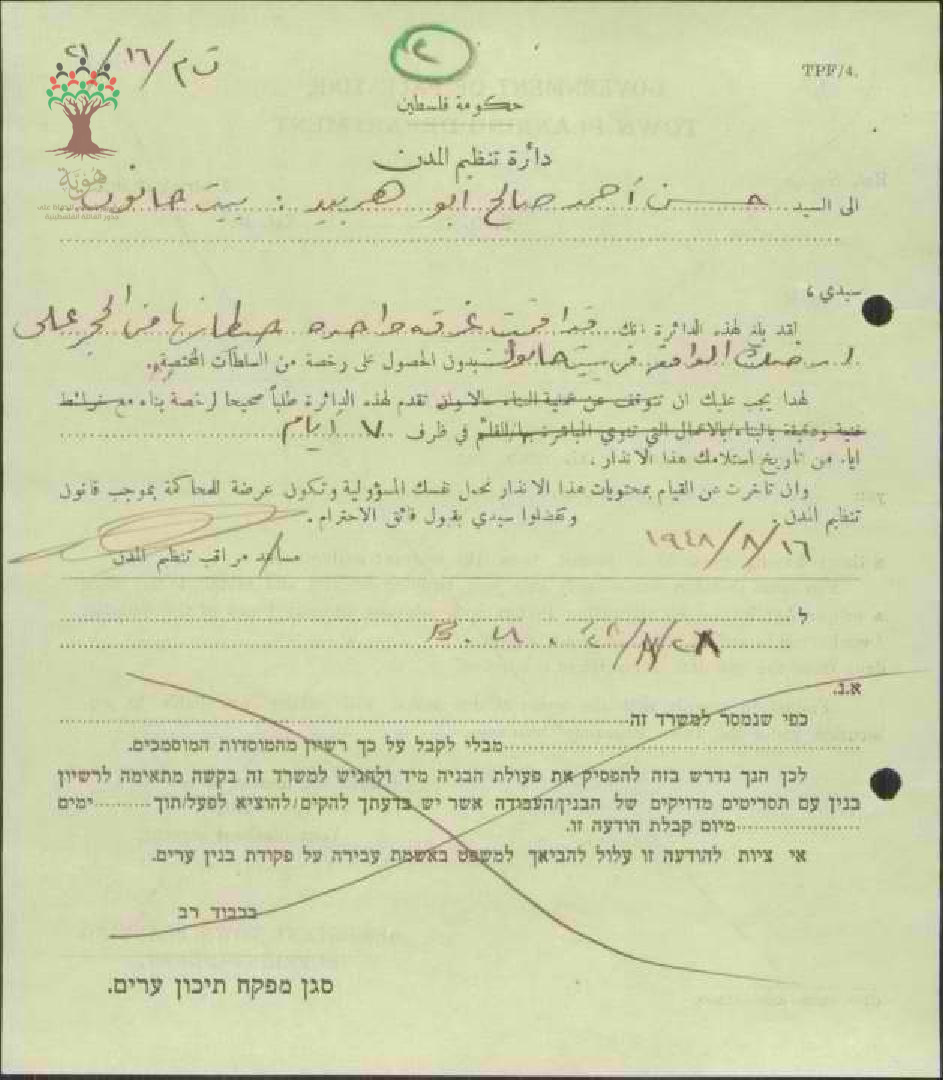 ت م / ١٦ / ٢١
٢
TPF/4.
حكومة فلسطين
دائرة تنظيم المدن
هوية
الى السيد حسن أحمد صالح ابو هربيد : بيت حانون
سيدي ،
لقد بلغ لهذه الدائرة انك قد اقمت غرفه واحده من الحجر على
الواقع في بيت حانون بدون الحصول على رخصة من السلطات المختصة.
لهذا يجب عليك ان تتوقف عن عملية البناء والان تقدم لهذه الدائرة طلباً صحيحا لرخصة بناء مع خرائط
فنية ودقيقة بالبناء/بالاعمال التي تنوي المباشرة بها/القائم في ظرف ٧ ايام
ايام من تاريخ استلامك هذا الانذار .
وان تأخرت عن القيام بمحتويات هذا الانذار تحمل نفسك المسؤولية وتكون عرضة للمحاكمة بموجب قانون
تنظيم المدن . وتفضلوا سيدي بقبول فائق الاحترام .
١٦/٨/١٩٤٨
مساعد مراقب تنظيم المدن
ل
א.נ.
כפי שנמסר למשרד זה
מבלי לקבל על כך רשיון מהמוסדות המוסמכים.
לכן הנך נדרש בזה להפסיק את פעולת הבניה מיד ולהגיש למשרד זה בקשה מתאימה לרשיון
בנין עם תסריטים מדויקים של הבנין/העמודה אשר יש בדעתך להקים/להוציא לפעל/תוך ימים
מיום קבלת הודעה זו.
אי ציות להודעה זו עלול להביאך למשפט באשמת עבירה על פקודת בנין ערים.
בכבוד רב
סגן מפקח תיכון ערים.